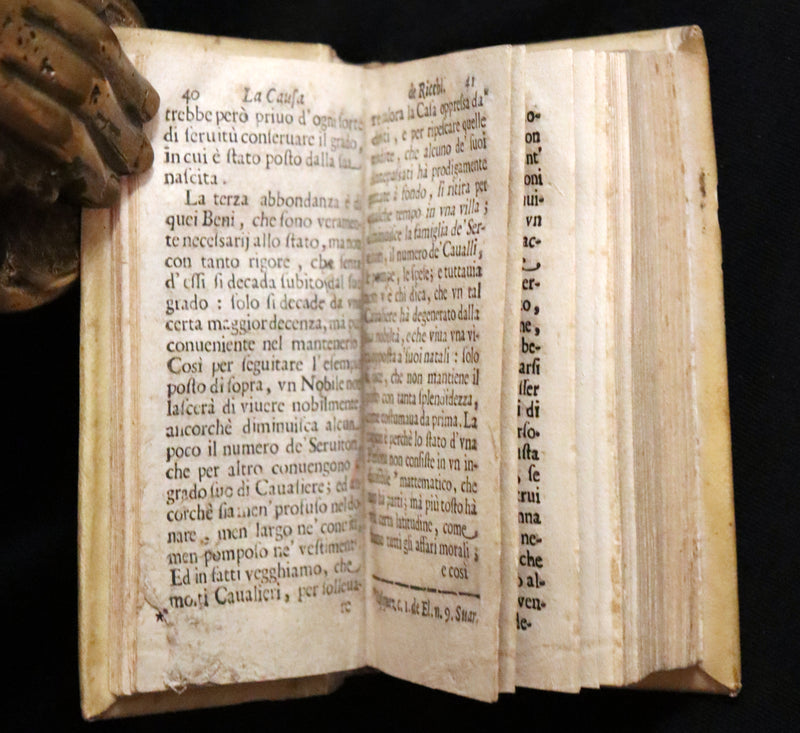 40 La Causa
trebbe però priuo d'ogni sorte
di seruitù conseruare il grado,
in cui è stato posto dalla sua
nascita.
La terza abbondanza è di
quei Beni, che sono veramen-
te necessarij allo stato, ma non
con tanto rigore, che senza
d'essi si decada subito dal suo
grado: solo si decade da vna
certa maggior decenza, mà più
conueniente nel mantenerlo
Così per seguitare l'esempio
posto di sopra, vn Nobile non
lascerà di viuere nobilmente,
ancorchè diminuisca alcun
poco il numero de' Seruitori
che per altro conuengono
grado suo di Caualiere; ed an-
corchè sia men' profuso nel do-
nare, men largo ne'
men pomposo ne' vestimenti
Ed in fatti vegghiamo, che
molti Caualieri, per solleua-
re
de Ricchi. 41
re talora la Casa oppressa da
debiti, e per ripescare quelle
che alcuno de' suoi
antepassati hà prodigamente
à fondo, si ritira per
qualche tempo in vna villa;
diminuisce la famiglia de' Ser-
uitori, il numero de' Caualli,
le pompe, le spese; e tuttauia
non v'è chi dica, che vn tal
Caualiere hà degenerato dalla
sua nobiltà, e che viua vna vi-
ta opposta a' suoi natali: solo
che non mantiene il
con tanta splendidezza,
come costumaua da prima. La
perchè lo stato d'vna
non consiste in vn in-
diuisibile mattematico, che
non hà parti; mà più tosto hà
certa latitudine, come
hanno tutti gli affari morali;
e così
c. 1. de El. n. 9. Suar.
o-
on
nt'
oni
nui-
vn
ac-
er-
to,
ne,
be-
arsi
sser
i di
rso-
usta
, se
trui
nna
ne-
che
o al-
ven-
de-